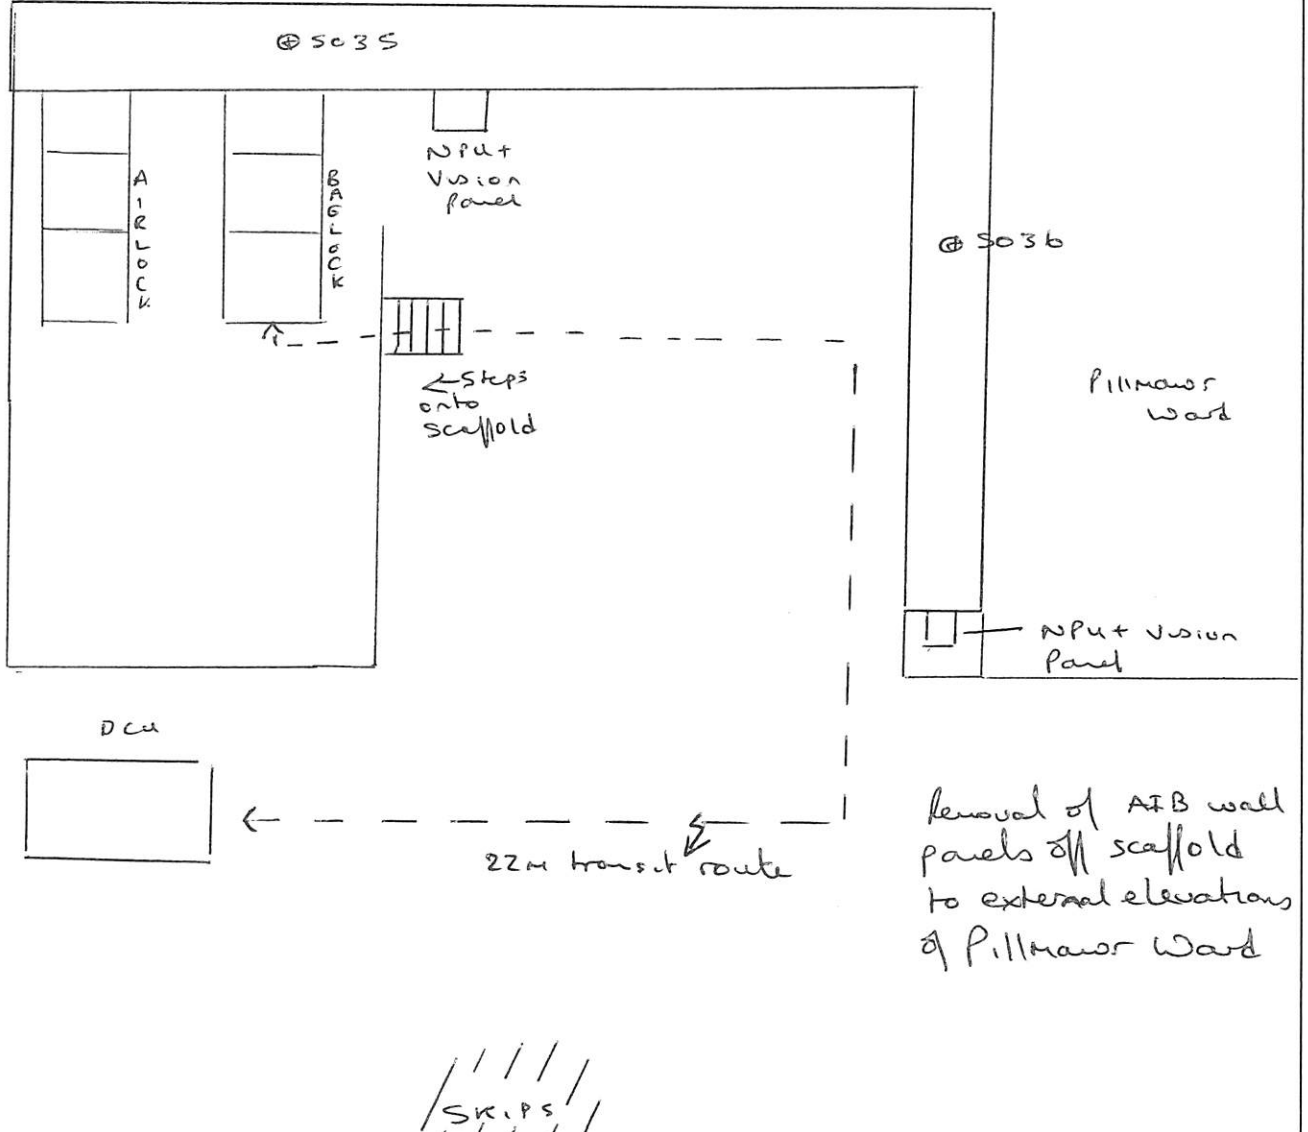 ⊕ S035
AIRLOCK
BAGLOCK
NPU+
Vision
Panel
⊕ S036
← Steps
onto
scaffold
Pillmawr
Ward
NPU+ Vision
Panel
DCU
22m transit route
Removal of AIB wall
panels off scaffold
to external elevations
of Pillmawr Ward
SKIPS